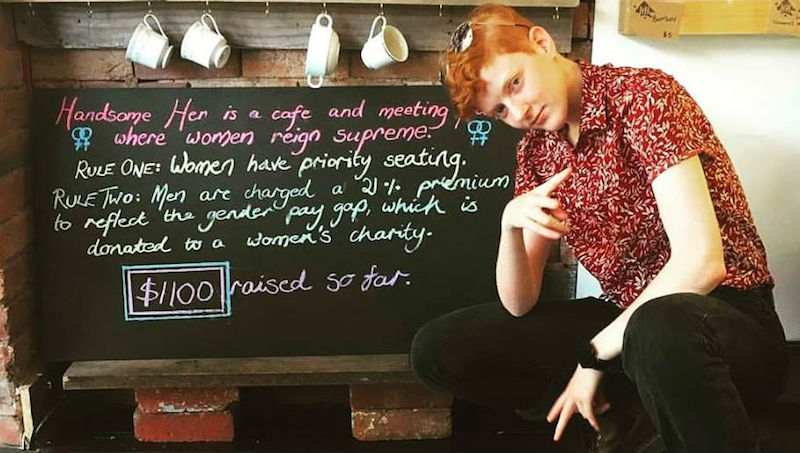 Handsome Her is a cafe and meeting
where women reign supreme.
RULE ONE: Women have priority seating.
RULE TWO: Men are charged a 21% premium
to reflect the gender pay gap, which is
donated to a women's charity.
$1100 raised so far.
BOMBAY
$5